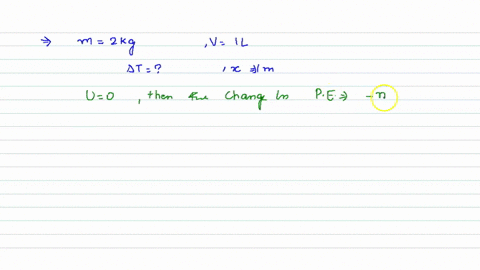 ⇒ m = 2kg , V = 1L
ΔT = ? , x ⇒ 1m
U=0 , then the change in P.E ⇒ -n